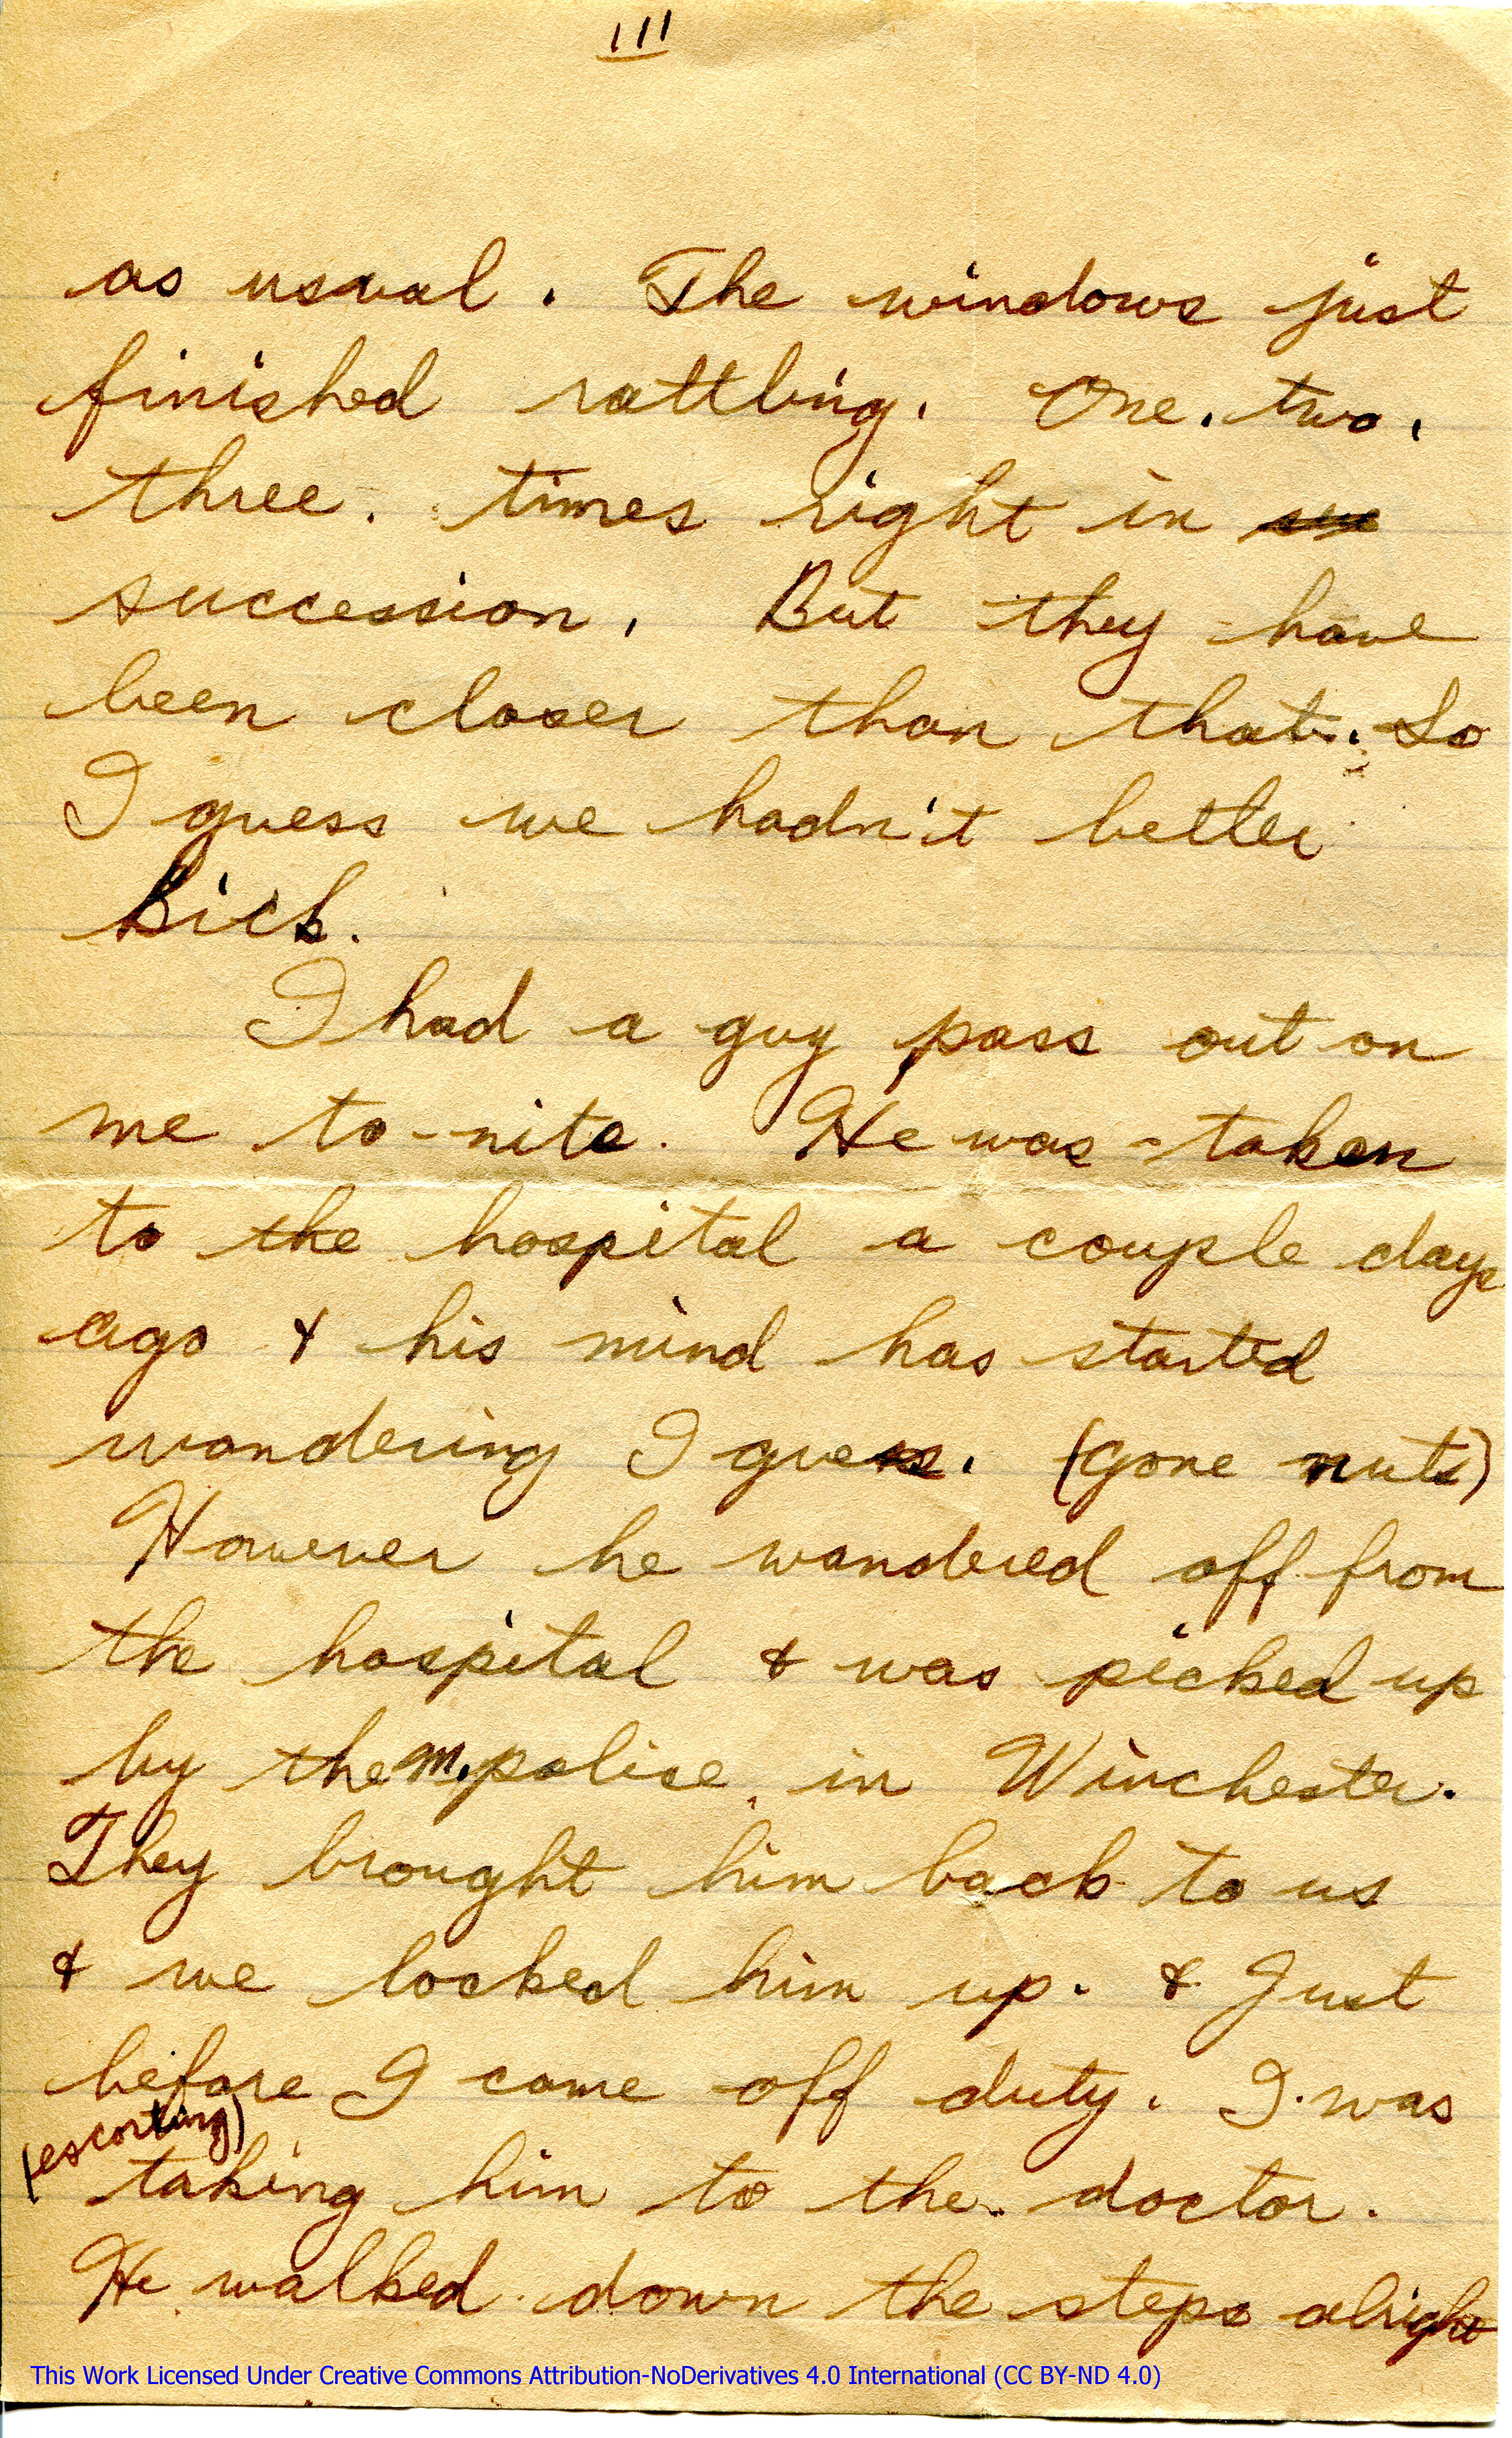 III
as usual. The windows just
finished rattling. One. two.
three. times right in su
succession. But they have
been closer than that. So
I guess we hadn't better
kick.
I had a guy pass out on
me to-nite. He was taken
to the hospital a couple days
ago & his mind has started
wandering I guess. (gone nuts)
However he wandered off from
the hospital & was picked up
by the m. police in Winchester.
They brought him back to us
& we locked him up. & Just
before I came off duty. I was
(escorting)
taking him to the doctor.
He walked down the steps alright
This Work Licensed Under Creative Commons Attribution-NoDerivatives 4.0 International (CC BY-ND 4.0)